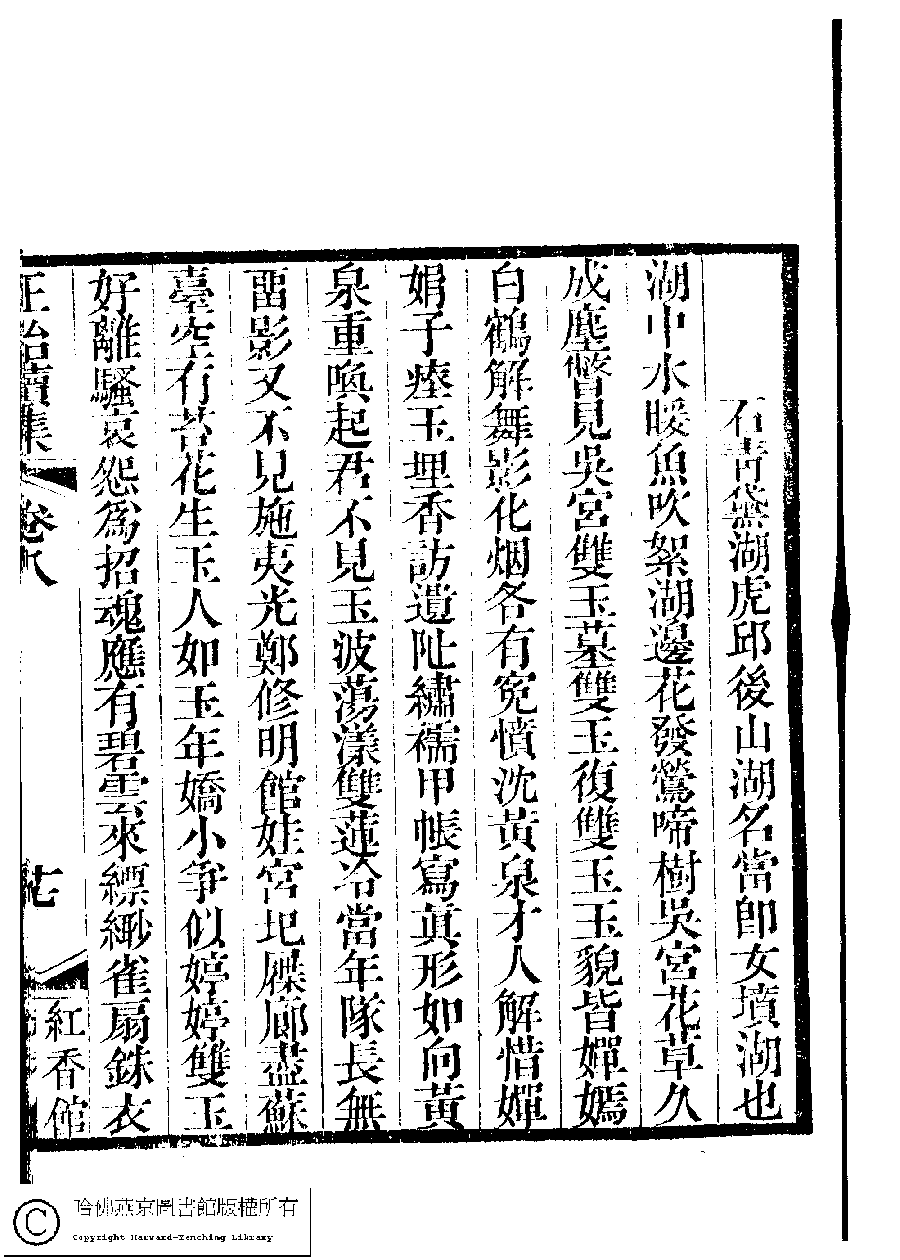 石青黛湖虎邱後山湖名當即女墳湖也
湖中水暖魚吹絮湖邊花發鶯啼樹吳宮花草久
成塵瞥見吳宮雙玉墓雙玉復雙玉玉貌皆嬋嫣
白鶴解舞影化烟各有寃憤沈黃泉才人解惜嬋
娟子瘞玉埋香訪遺阯繡襦甲帳寫眞形如向黃
泉重喚起君不見玉波蕩漾雙蓮冷當年隊長無
畱影又不見施夷光鄭修明館娃宮圮屧廊盡蘇
臺空有苔花生玉人如玉年嬌小爭似婷婷雙玉
好離騷哀怨爲招魂應有碧雲來縹緲雀扇銖衣
正始續集 卷八 七 紅香館
哈佛燕京圖書館版權所有
Copyright Harvard-Yenching Library